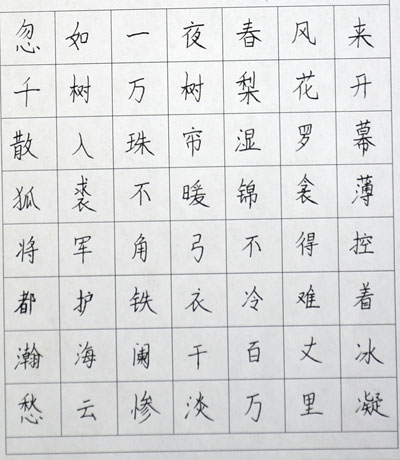 忽如一夜春风来
千树万树梨花开
散入珠帘湿罗幕
狐裘不暖锦衾薄
将军角弓不得控
都护铁衣冷难着
瀚海阑干百丈冰
愁云惨淡万里凝